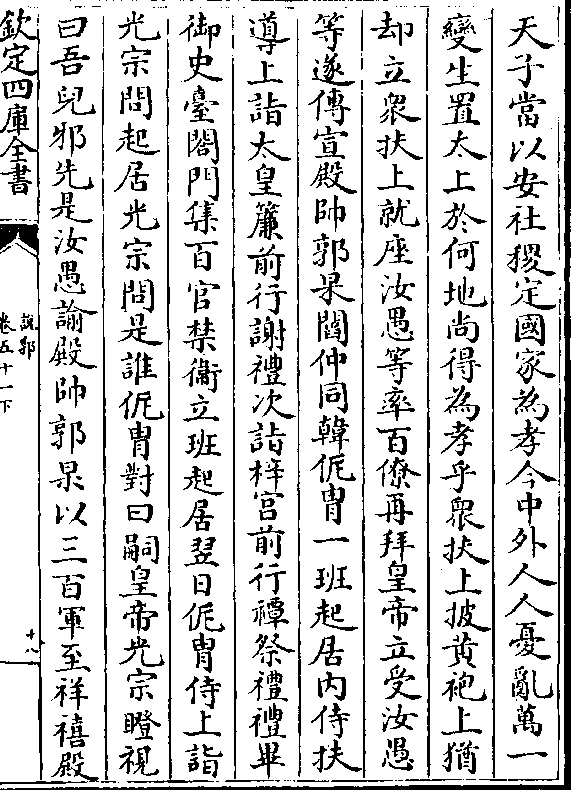 天子當以安社稷定國家為孝今中外人人憂亂萬一
變生置太上於何地尚得為孝乎衆扶上披黃袍上猶
却立衆扶上就座汝愚等率百僚再拜皇帝立受汝愚
等遂傳宣殿帥郭杲閻仲同韓侂胄一班起居内侍扶
導上詣太皇簾前行謝禮次詣梓宫前行禫祭禮禮畢
御史臺閤門集百官禁衞立班起居翌日侂胄侍上詣
光宗問起居光宗問是誰侂胄對曰嗣皇帝光宗瞪視
曰吾兒邪先是汝愚諭殿帥郭杲以三百軍至祥禧殿
欽定四庫全書
説郛
卷五十一下
十八